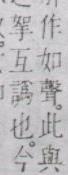 作如聲。此與
拏互譌也。今